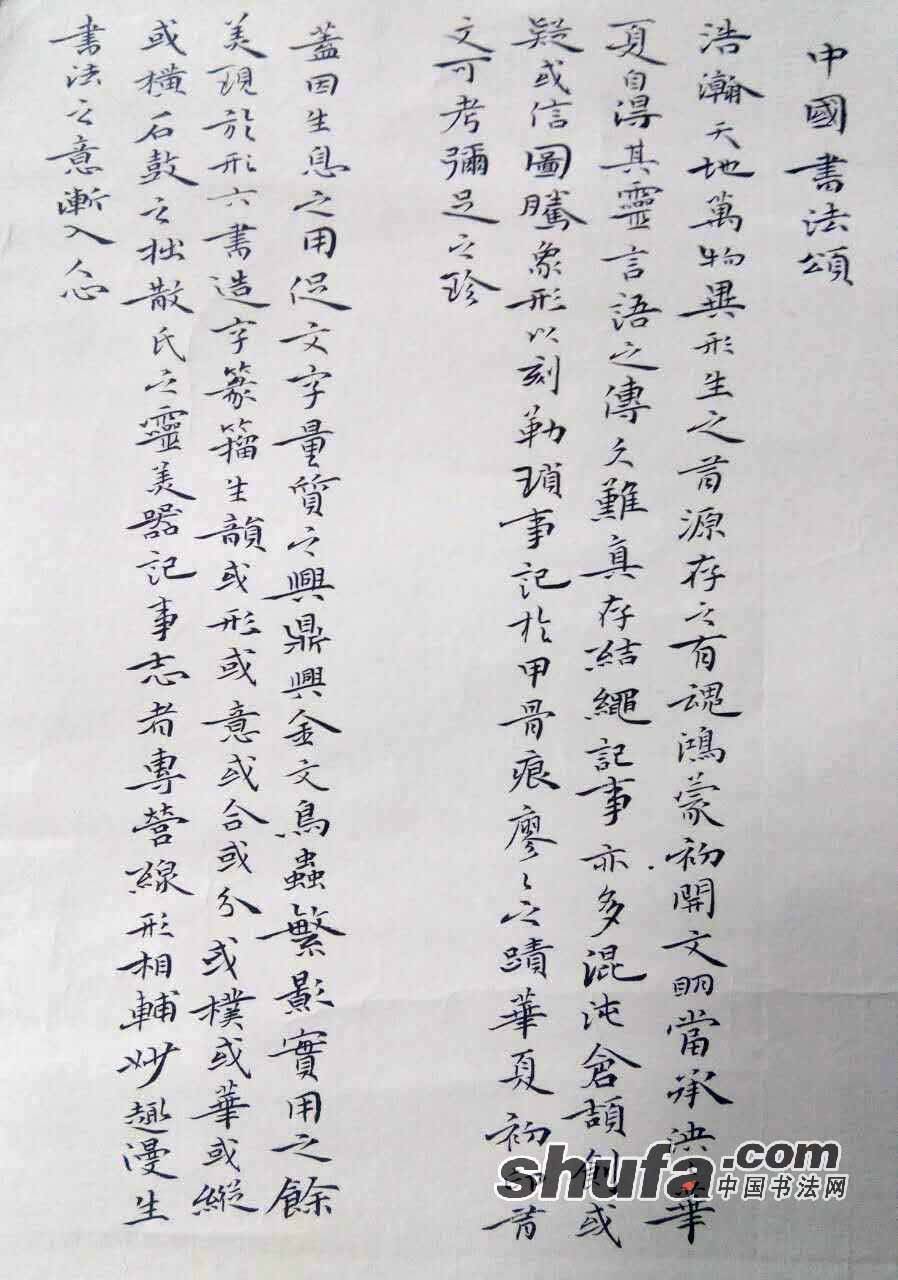 中國書法頌
浩瀚天地萬物異形生之有源存之有魂鴻蒙初開文明當承洪 華
夏自得其靈言語之傳久難真存結繩記事亦多混沌倉頡創或
疑或信圖騰象形以刻勒瑣事記於甲骨痕廖々之蹟華夏初 有
文可考彌足之珍
蓋因生息之用促文字量質之興鼎興金文鳥蟲繁影實用之餘
美現於形六書造字篆籀生韻或形或意或合或分或樸或華或縱
或橫石鼓之拙散氏之靈美器記事志者專營線形相輔妙趣漫生
書法之意漸入人心
shufa.com
中国书法网